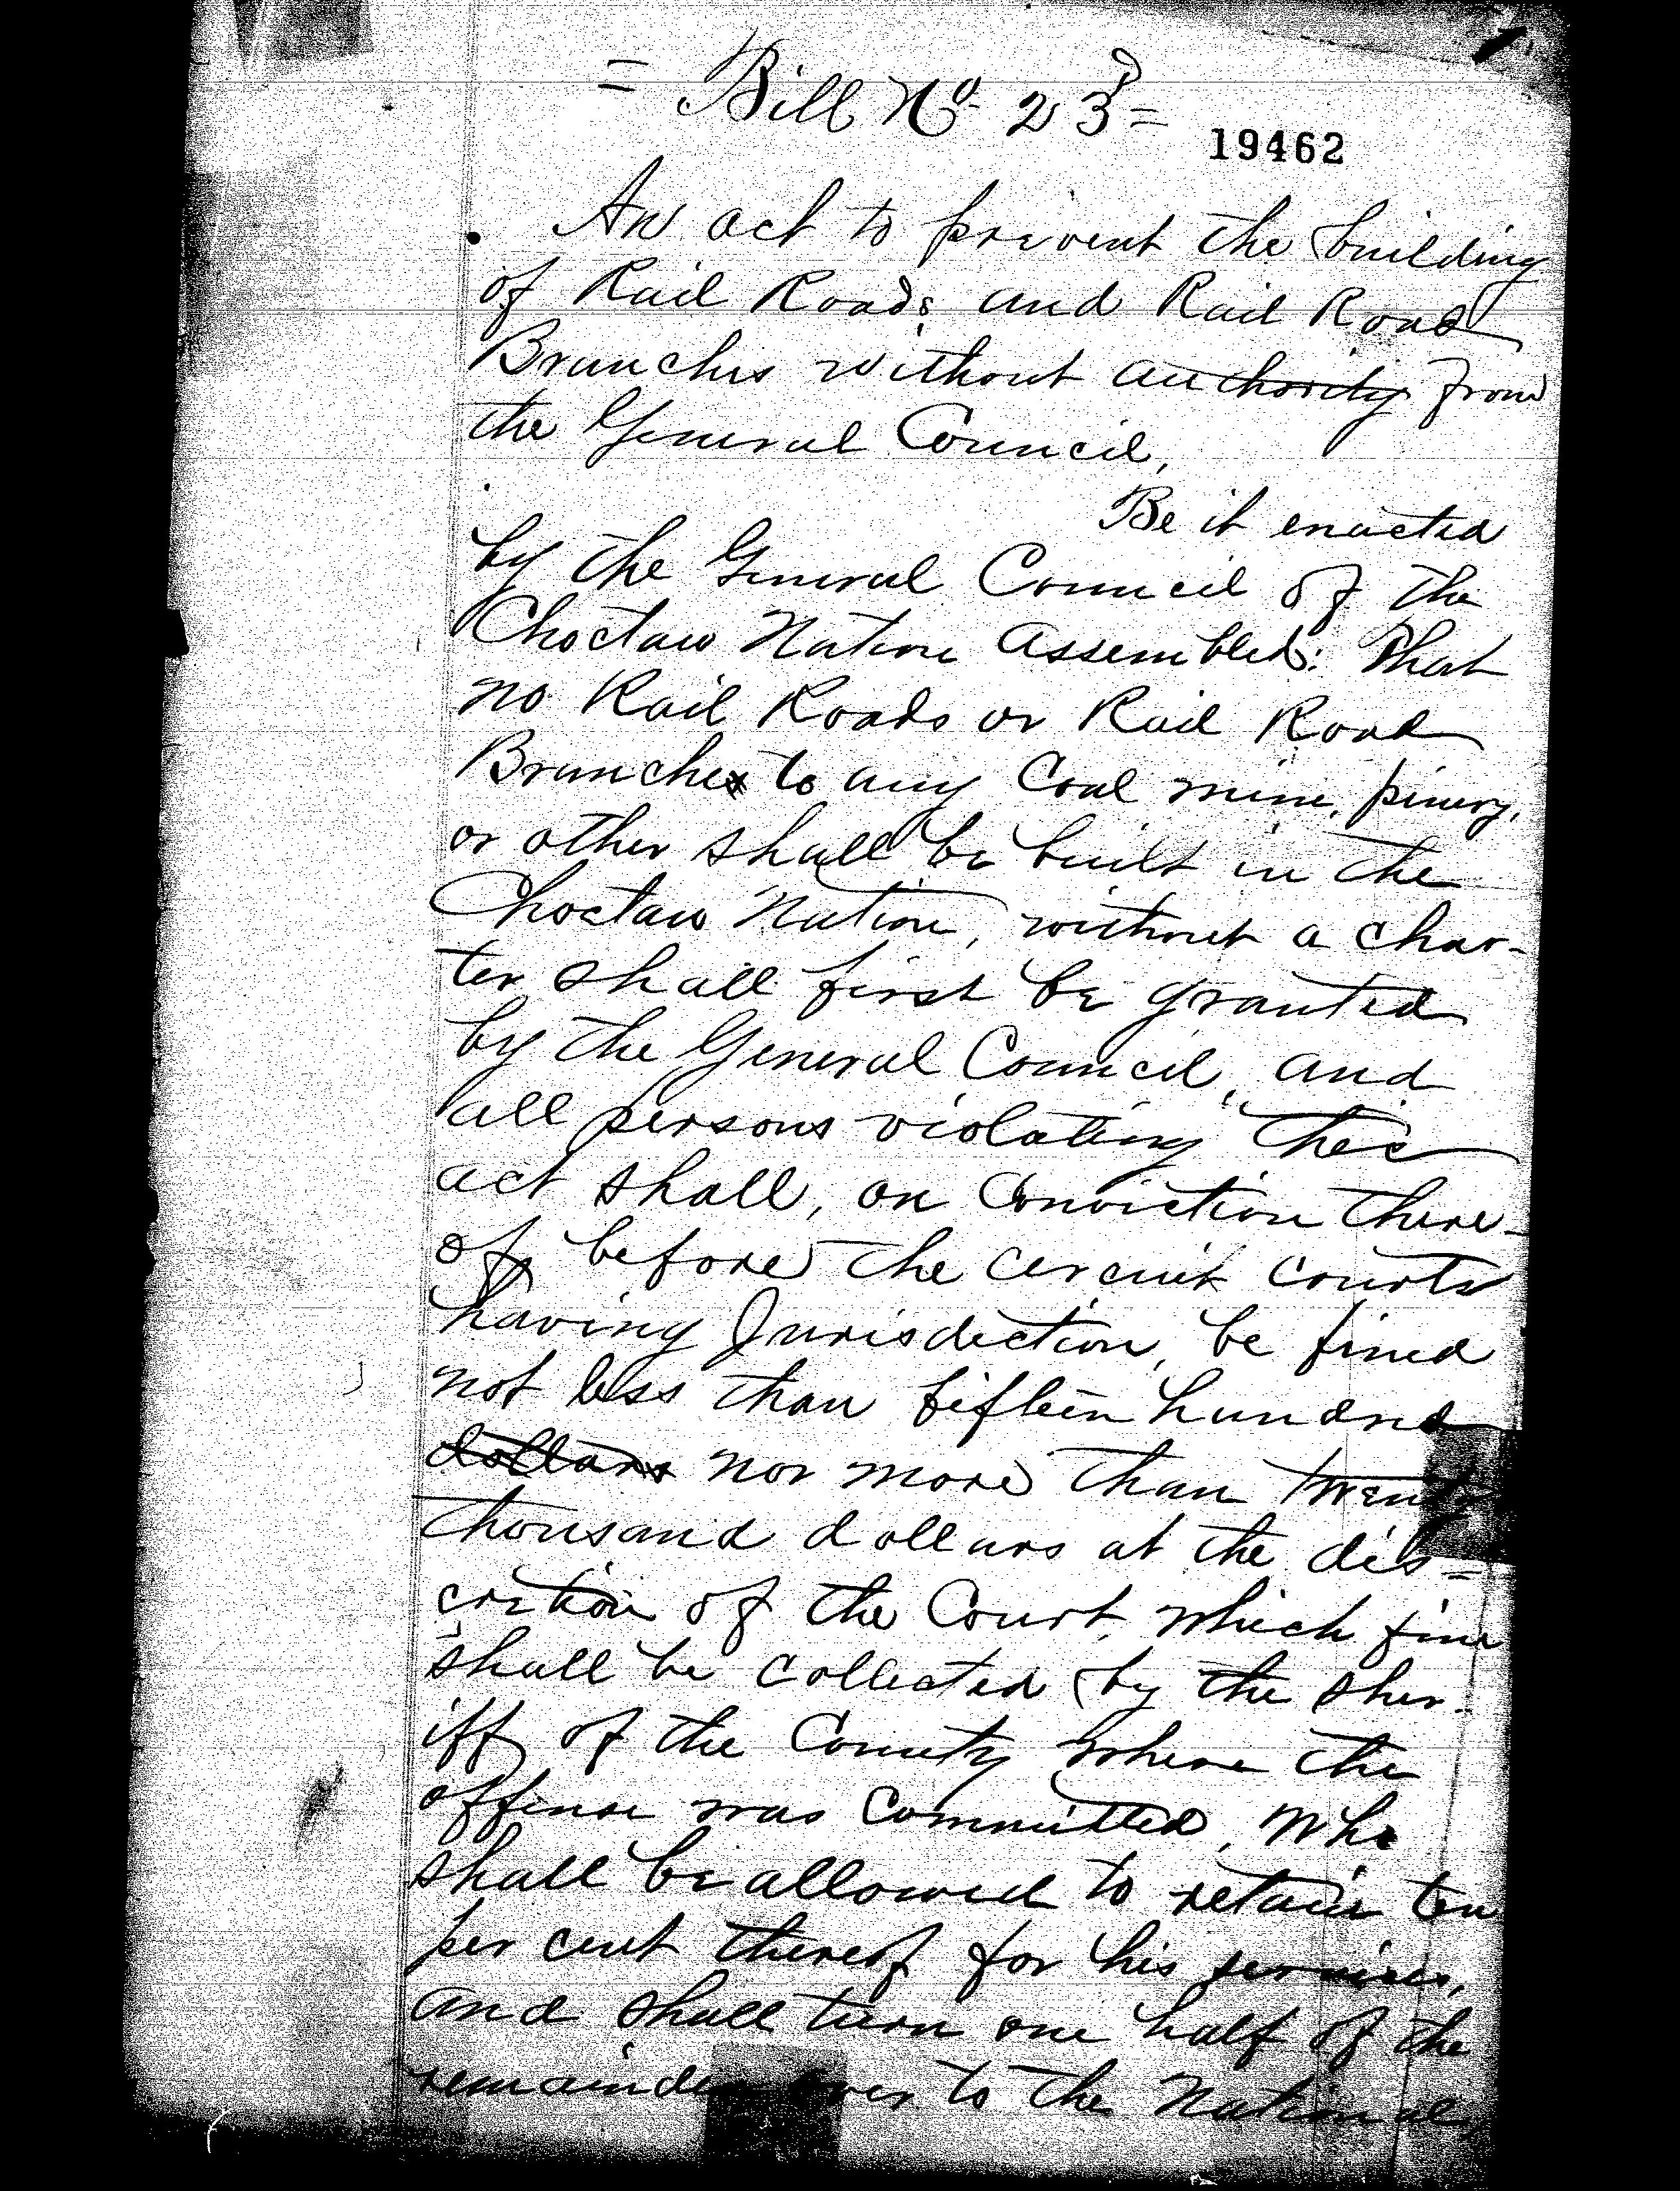 = Bill No. 23 =
19462
An act to prevent the building
of Rail Roads and Rail Road
Branches without authority from
the General Council,
Be it enacted
by the General Council of the
Choctaw Nation Assembled: That
no Rail Roads or Rail Road
Branches to any Coal mine, pinery,
or other shall be built in the
Choctaw Nation, without a char-
ter shall first be granted
by the General Council, and
all persons violating this
act shall, on Conviction there-
of before the circuit courts
having Jurisdiction, be fined
not less than fifteen hundred
dollars nor more than twenty
thousand dollars at the dis=
cretion of the Court, which fine
shall be collected by the sher-
iff of the County where the
offense was Committed, Who
shall be allowed to retain ten
per cent thereof for his services,
and shall turn one half of the
remainder over to the National